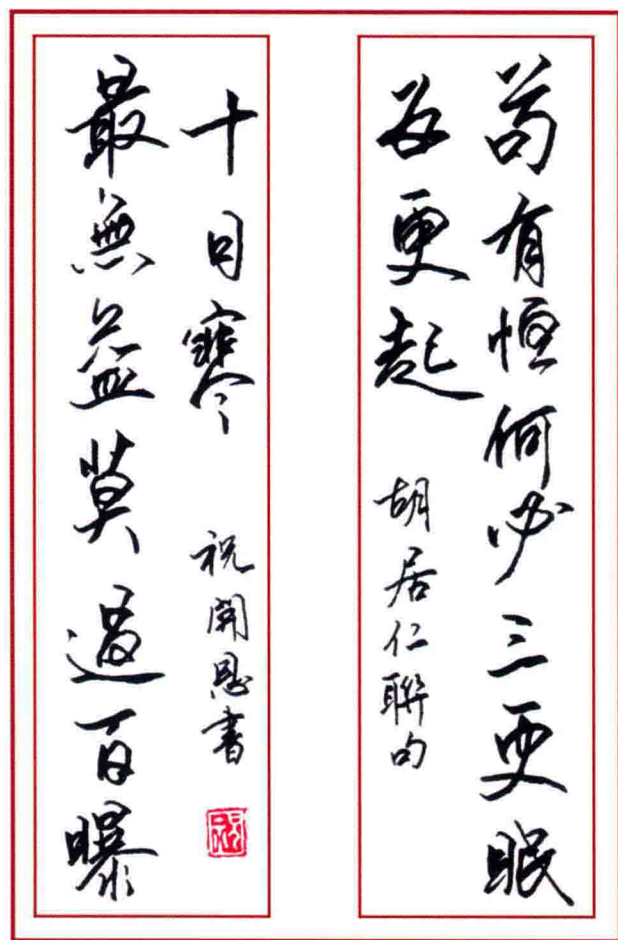 苟有恒何必三更眠
五更起
胡居仁聯句
最無益莫過一日曝
十日寒
祝開恩書